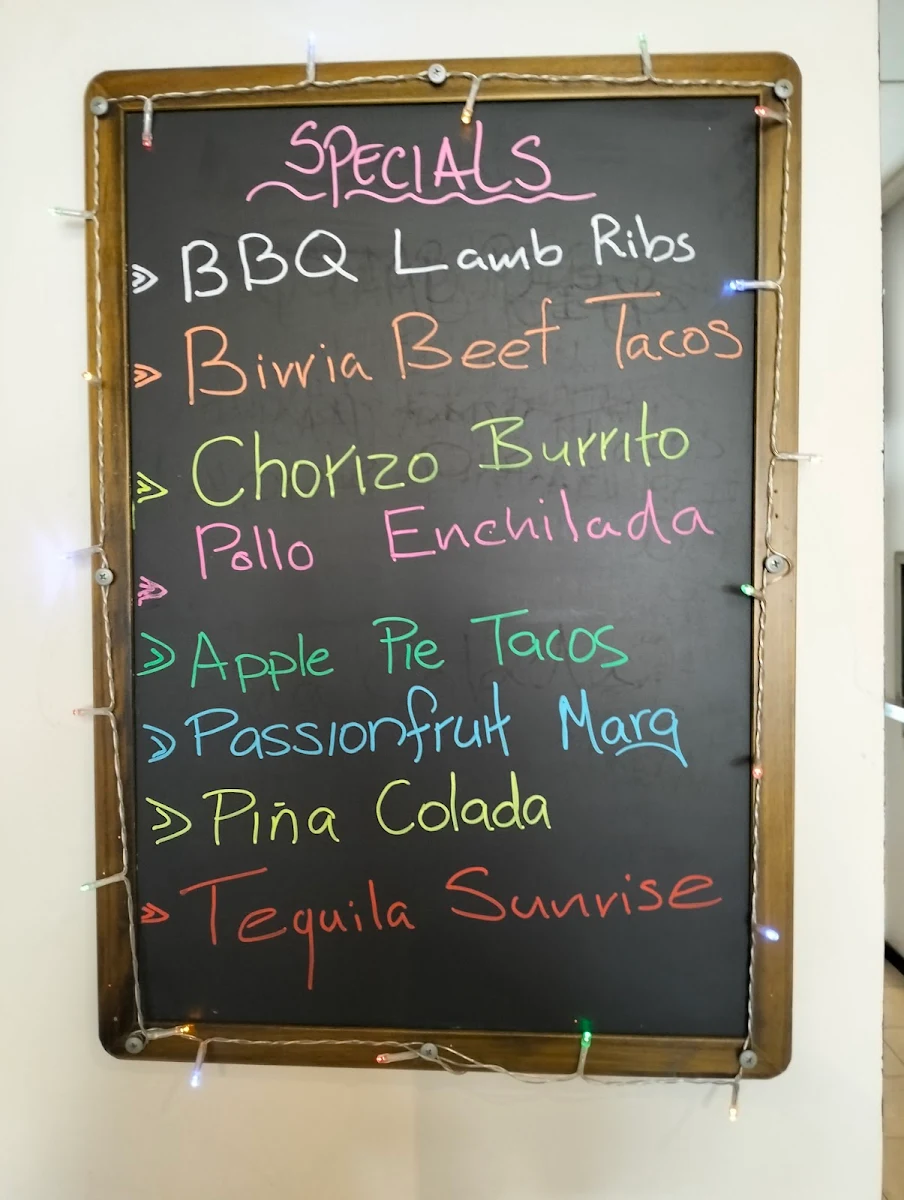 SPECIALS
» BBQ Lamb Ribs
» Birria Beef Tacos
» Chorizo Burrito
» Pollo Enchilada
» Apple Pie Tacos
» Passionfruit Marg
» Piña Colada
» Tequila Sunrise